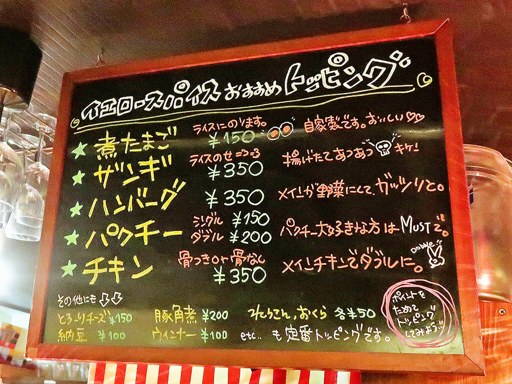 イエロースパイスおすすめトッピング
煮たまご ライスにのります。 ¥150 自家製です。おいしい♡♡
ザンギ ライスのせ ¥350 揚げたてあつあつ キケン!
ハンバーグ ¥350 メインが野菜にして、ガッツリと。
パクチー シングル ¥150 ダブル ¥200 パクチー大好きな方はMUSTで。
チキン 骨つきor骨なし ¥350 メインチキンでダブルに。
その他にも
とろ〜りチーズ ¥150 豚角煮 ¥200 れんこん、おくら 各¥50
納豆 ¥100 ウィンナー ¥100 etc.. も定番トッピングです。
ポイントを
ためて
トッピング
してみよう!!